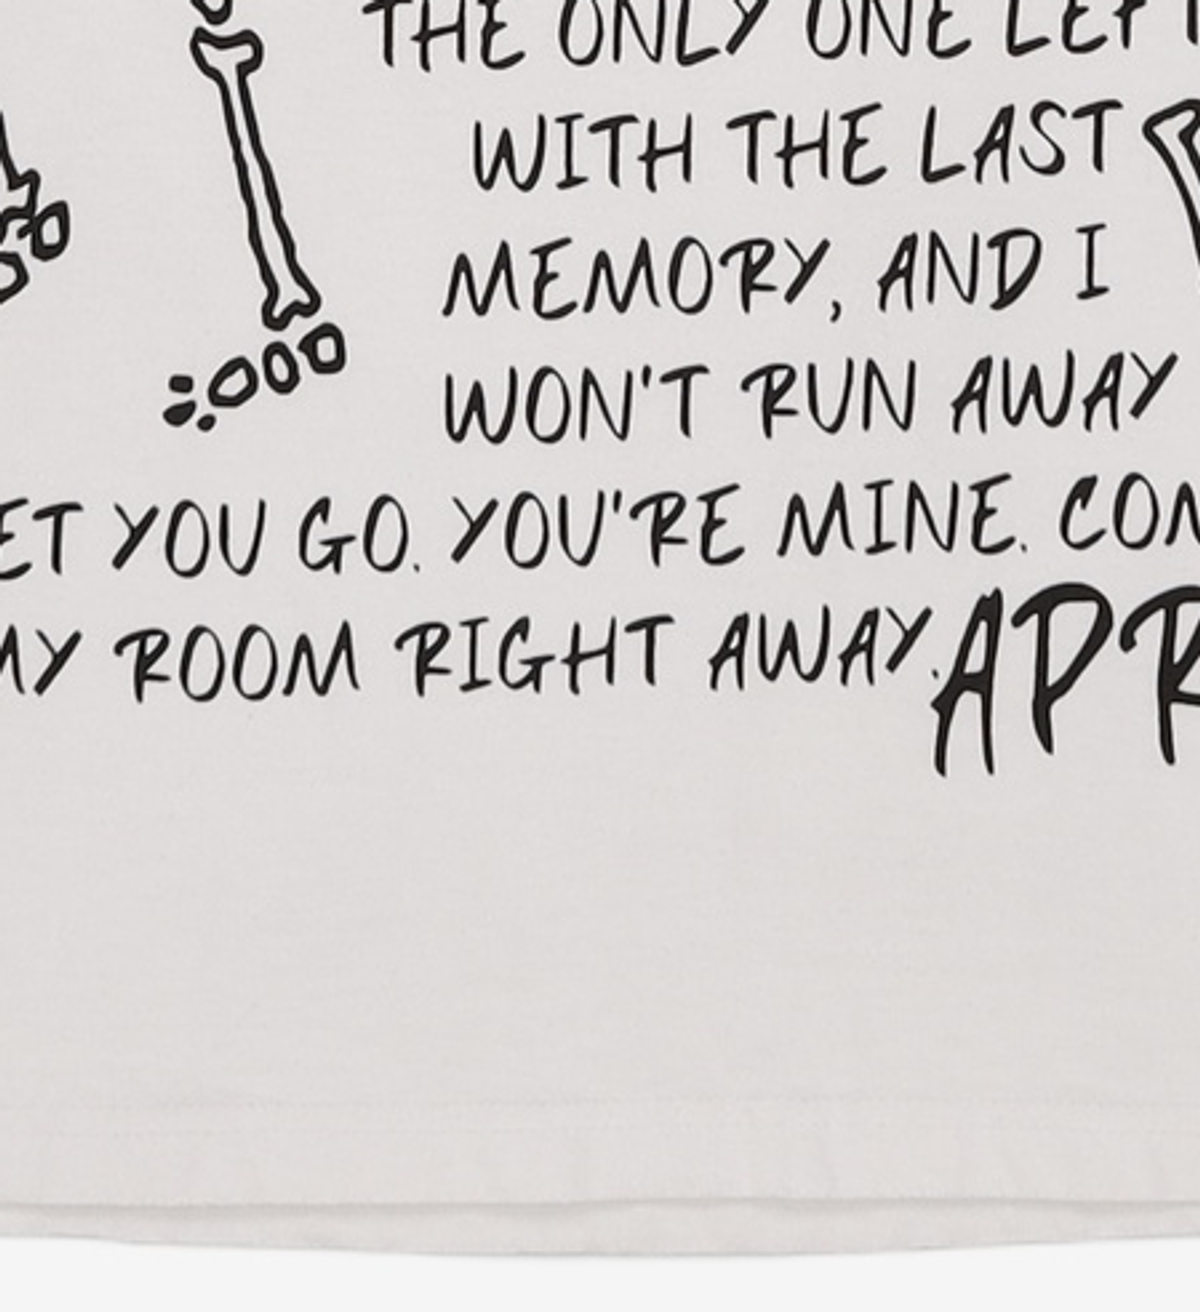 THE ONLY ONE LEFT
WITH THE LAST
MEMORY, AND I
WON'T RUN AWAY
YOU GO. YOU'RE MINE.
ROOM RIGHT AWAY.